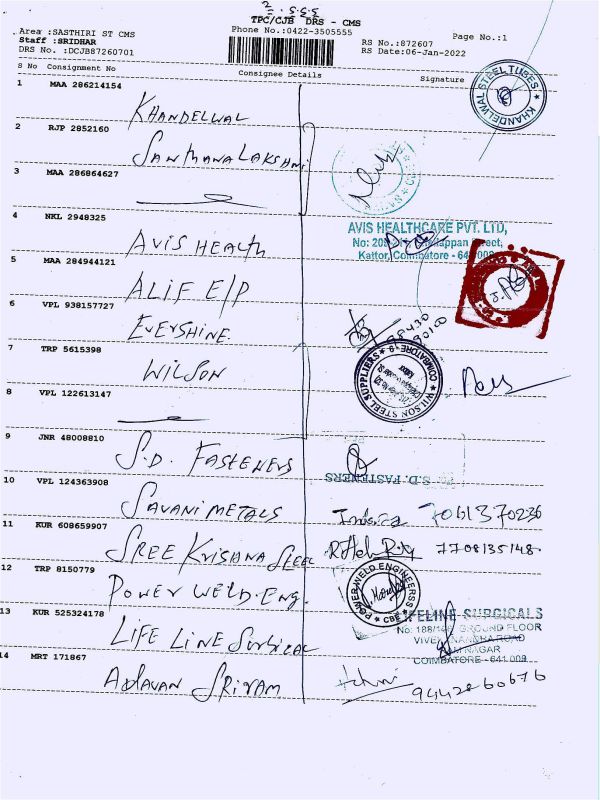 TPC/CJB DRS - CMS
Area :SASTHIRI ST CMS
Phone No.:0422-3505555
Page No.:1
Staff :SRIDHAR
RS No.:872607
DRS No. :DCJB87260701
RS Date:06-Jan-2022
S No Consignment No
Consignee Details
Signature
1 MAA 286214154
KHANDELWAL
KHANDELWAL STEEL TUBES
2 RJP 2852160
SANMANA LAKSHMI
3 MAA 286864627
4 NKL 2948325
AVIS HEALTH
AVIS HEALTHCARE PVT. LTD,
Kattor, Coimbatore - 641 009
5 MAA 284944121
ALIF E/P
6 VPL 938157727
EVERSHINE
98430
90100
7 TRP 5615398
WILSON
WILSON STEEL SUPPLIERS COIMBATORE-9
8 VPL 122613147
9 JNR 48008810
S.D. FASTENERS
S.D. FASTENERS
10 VPL 124363908
SAVANI METALS
7061370236
11 KUR 608659907
SREE KRISHNA STEEL
7708135148
12 TRP 8150779
POWER WELD. ENG.
POWER WELD ENGINEERSS CBE
13 KUR 525324178
LIFE LINE SURGICAL
LIFELINE SURGICALS
GROUND FLOOR
COIMBATORE - 641 009
14 MRT 171867
ADHAVAN SRIRAM
9442860676